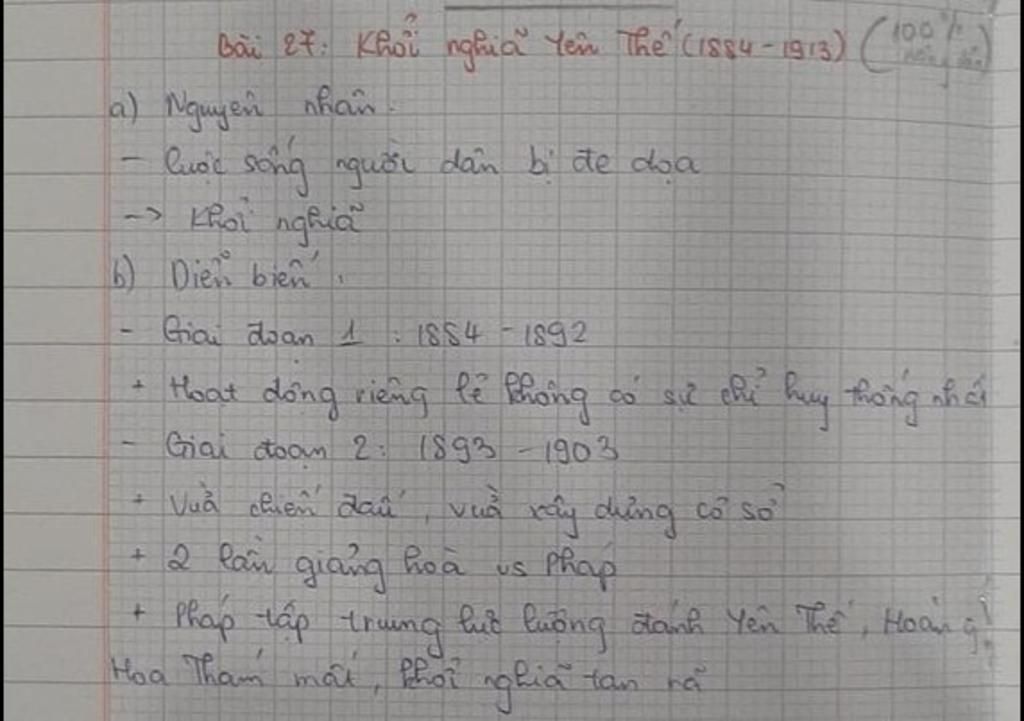 Bài 27: Khởi nghĩa Yên Thế (1884-1913) (100%
a) Nguyên nhân.
- Cuộc sống người dân bị đe dọa
-> Khởi nghĩa
b) Diễn biến.
- Giai đoạn 1: 1884-1892
+ Hoạt động riêng lẻ không có sự chỉ huy thống nhất
- Giai đoạn 2: 1893-1903
+ Vừa chiến đấu, vừa xây dựng cơ sở
+ 2 lần giảng hoà vs Pháp
+ Pháp tập trung lực lượng đánh Yên Thế, Hoàng
Hoa Thám mất, khởi nghĩa tan rã